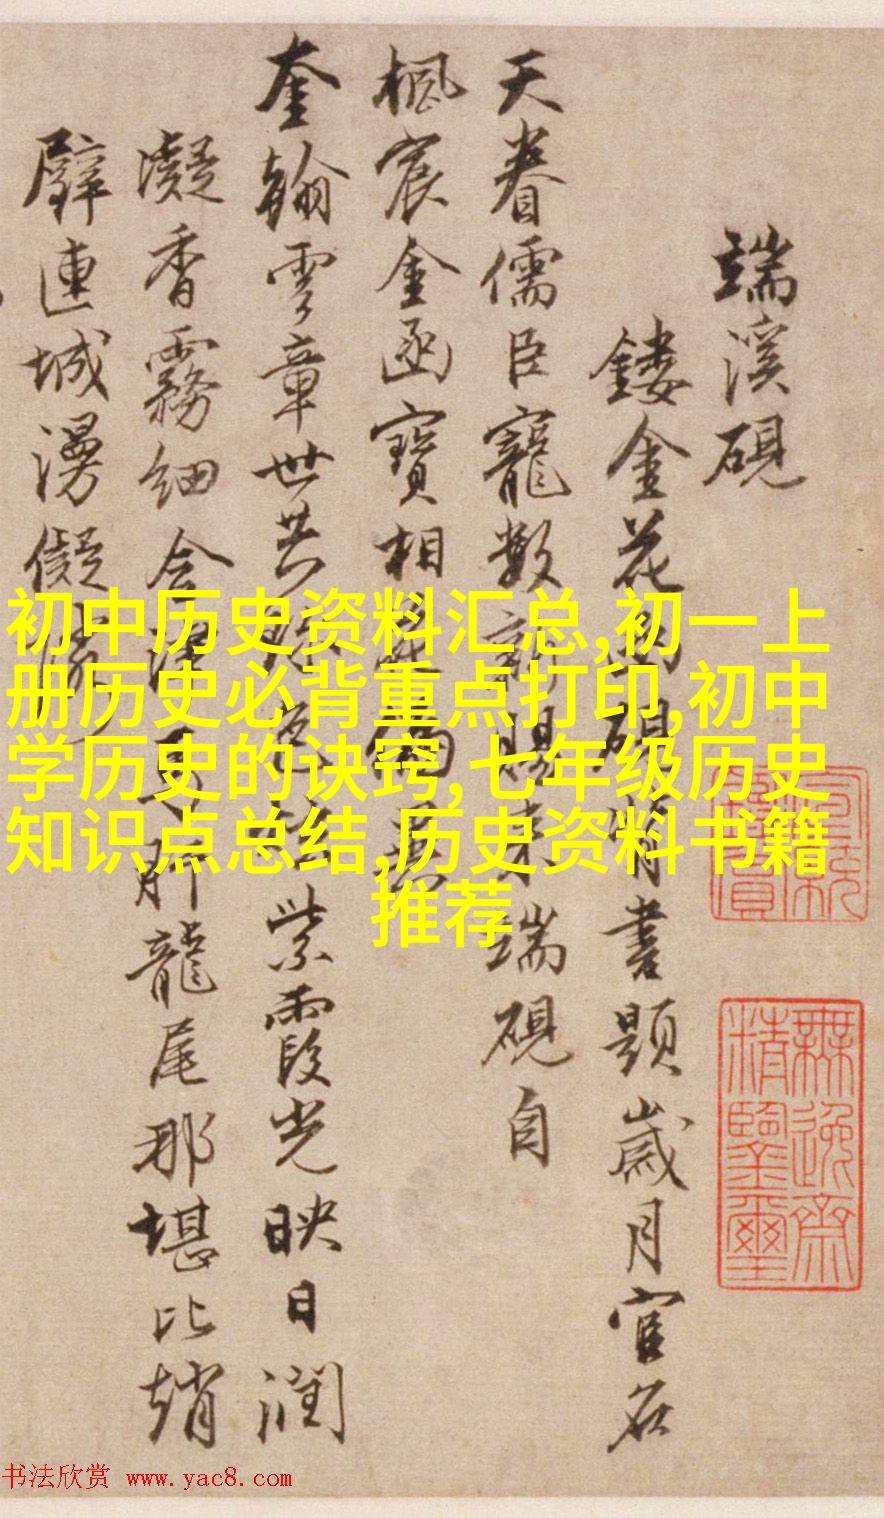 端溪硯
鏤金花硯背書題歲月官名
天眷儒臣寵數新賜來端硯自
楓宸金函寶相
奎翰雲章世共紫霞光映日潤
凝香霧細含肝龍尾那堪比趙
璧連城漫儗
無逸齋精鑒璽
初中历史资料汇总,初一上
册历史必背重点打印,初中
学历史的诀窍,七年级历史
知识点总结,历史资料书籍
推荐
书法欣赏 www.yac8.com